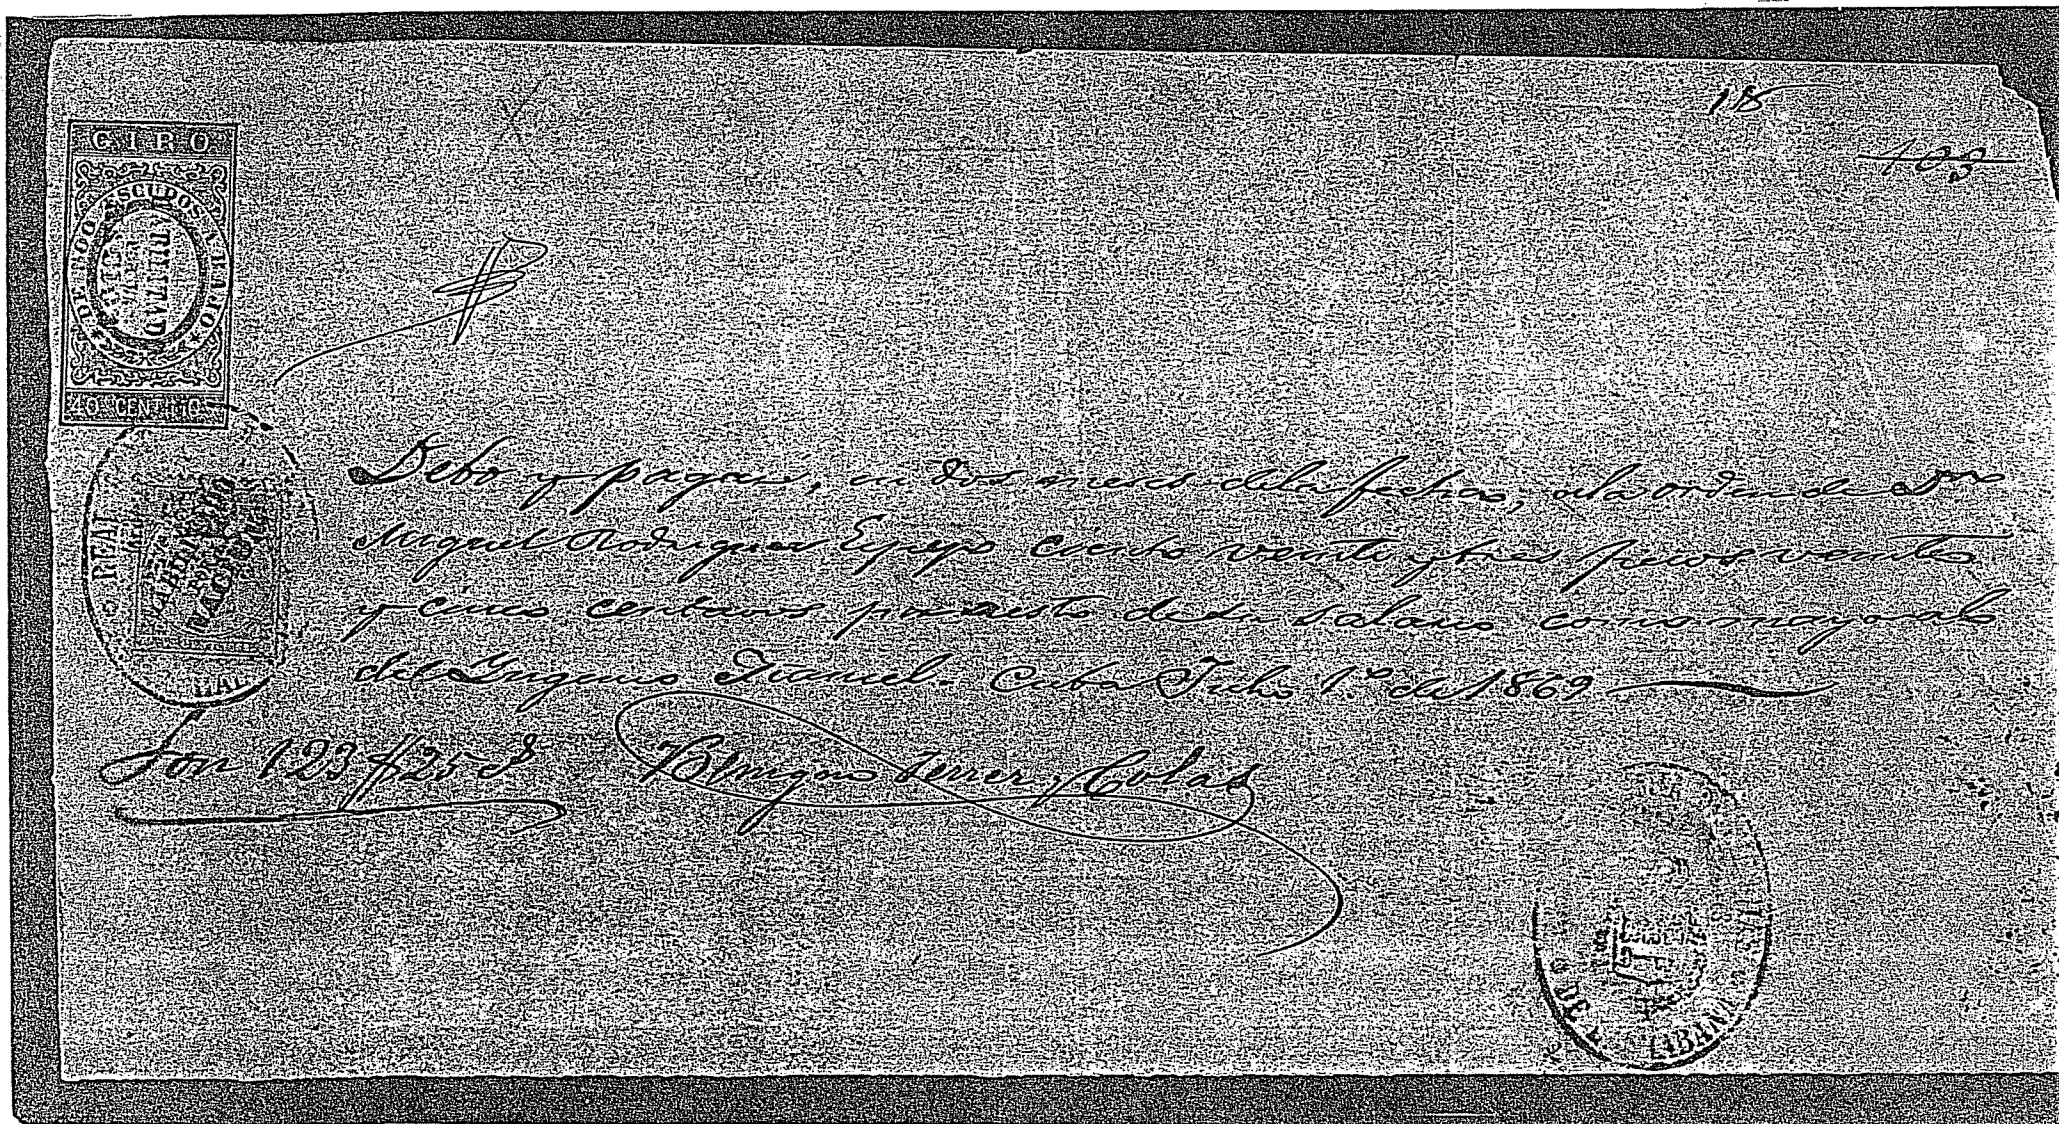 18
108
GIRO
DE 1100 ESCUDOS ABAJO
40 CENTIMOS
Debo y pagaré, en dos meses de la fecha, a la orden de Dn
Miguel Rodriguez ciento veinte y tres pesos veinte
y cinco centavos por resto de su salario como mayoral
del Ingenio Cuba Julio 1º de 1869
REAL
Son 123 $ 25 cs
Benigno Ferrer y Colás
DE